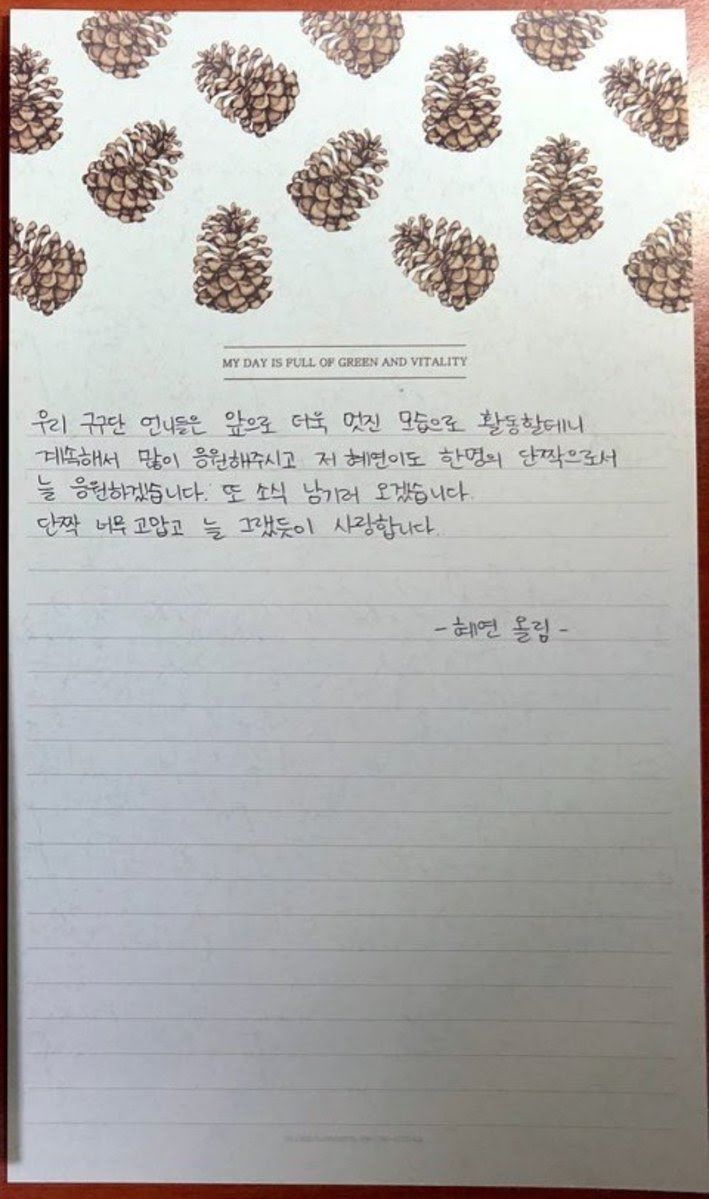 MY DAY IS FULL OF GREEN AND VITALITY
우리 구구단 언니들은 앞으로 더욱 멋진 모습으로 활동할테니
계속해서 많이 응원해주시고 저 혜연이도 한명의 단짝으로서
늘 응원하겠습니다. 또 소식 남기러 오겠습니다.
단짝 너무 고맙고 늘 그랬듯이 사랑합니다.
- 혜연 올림 -